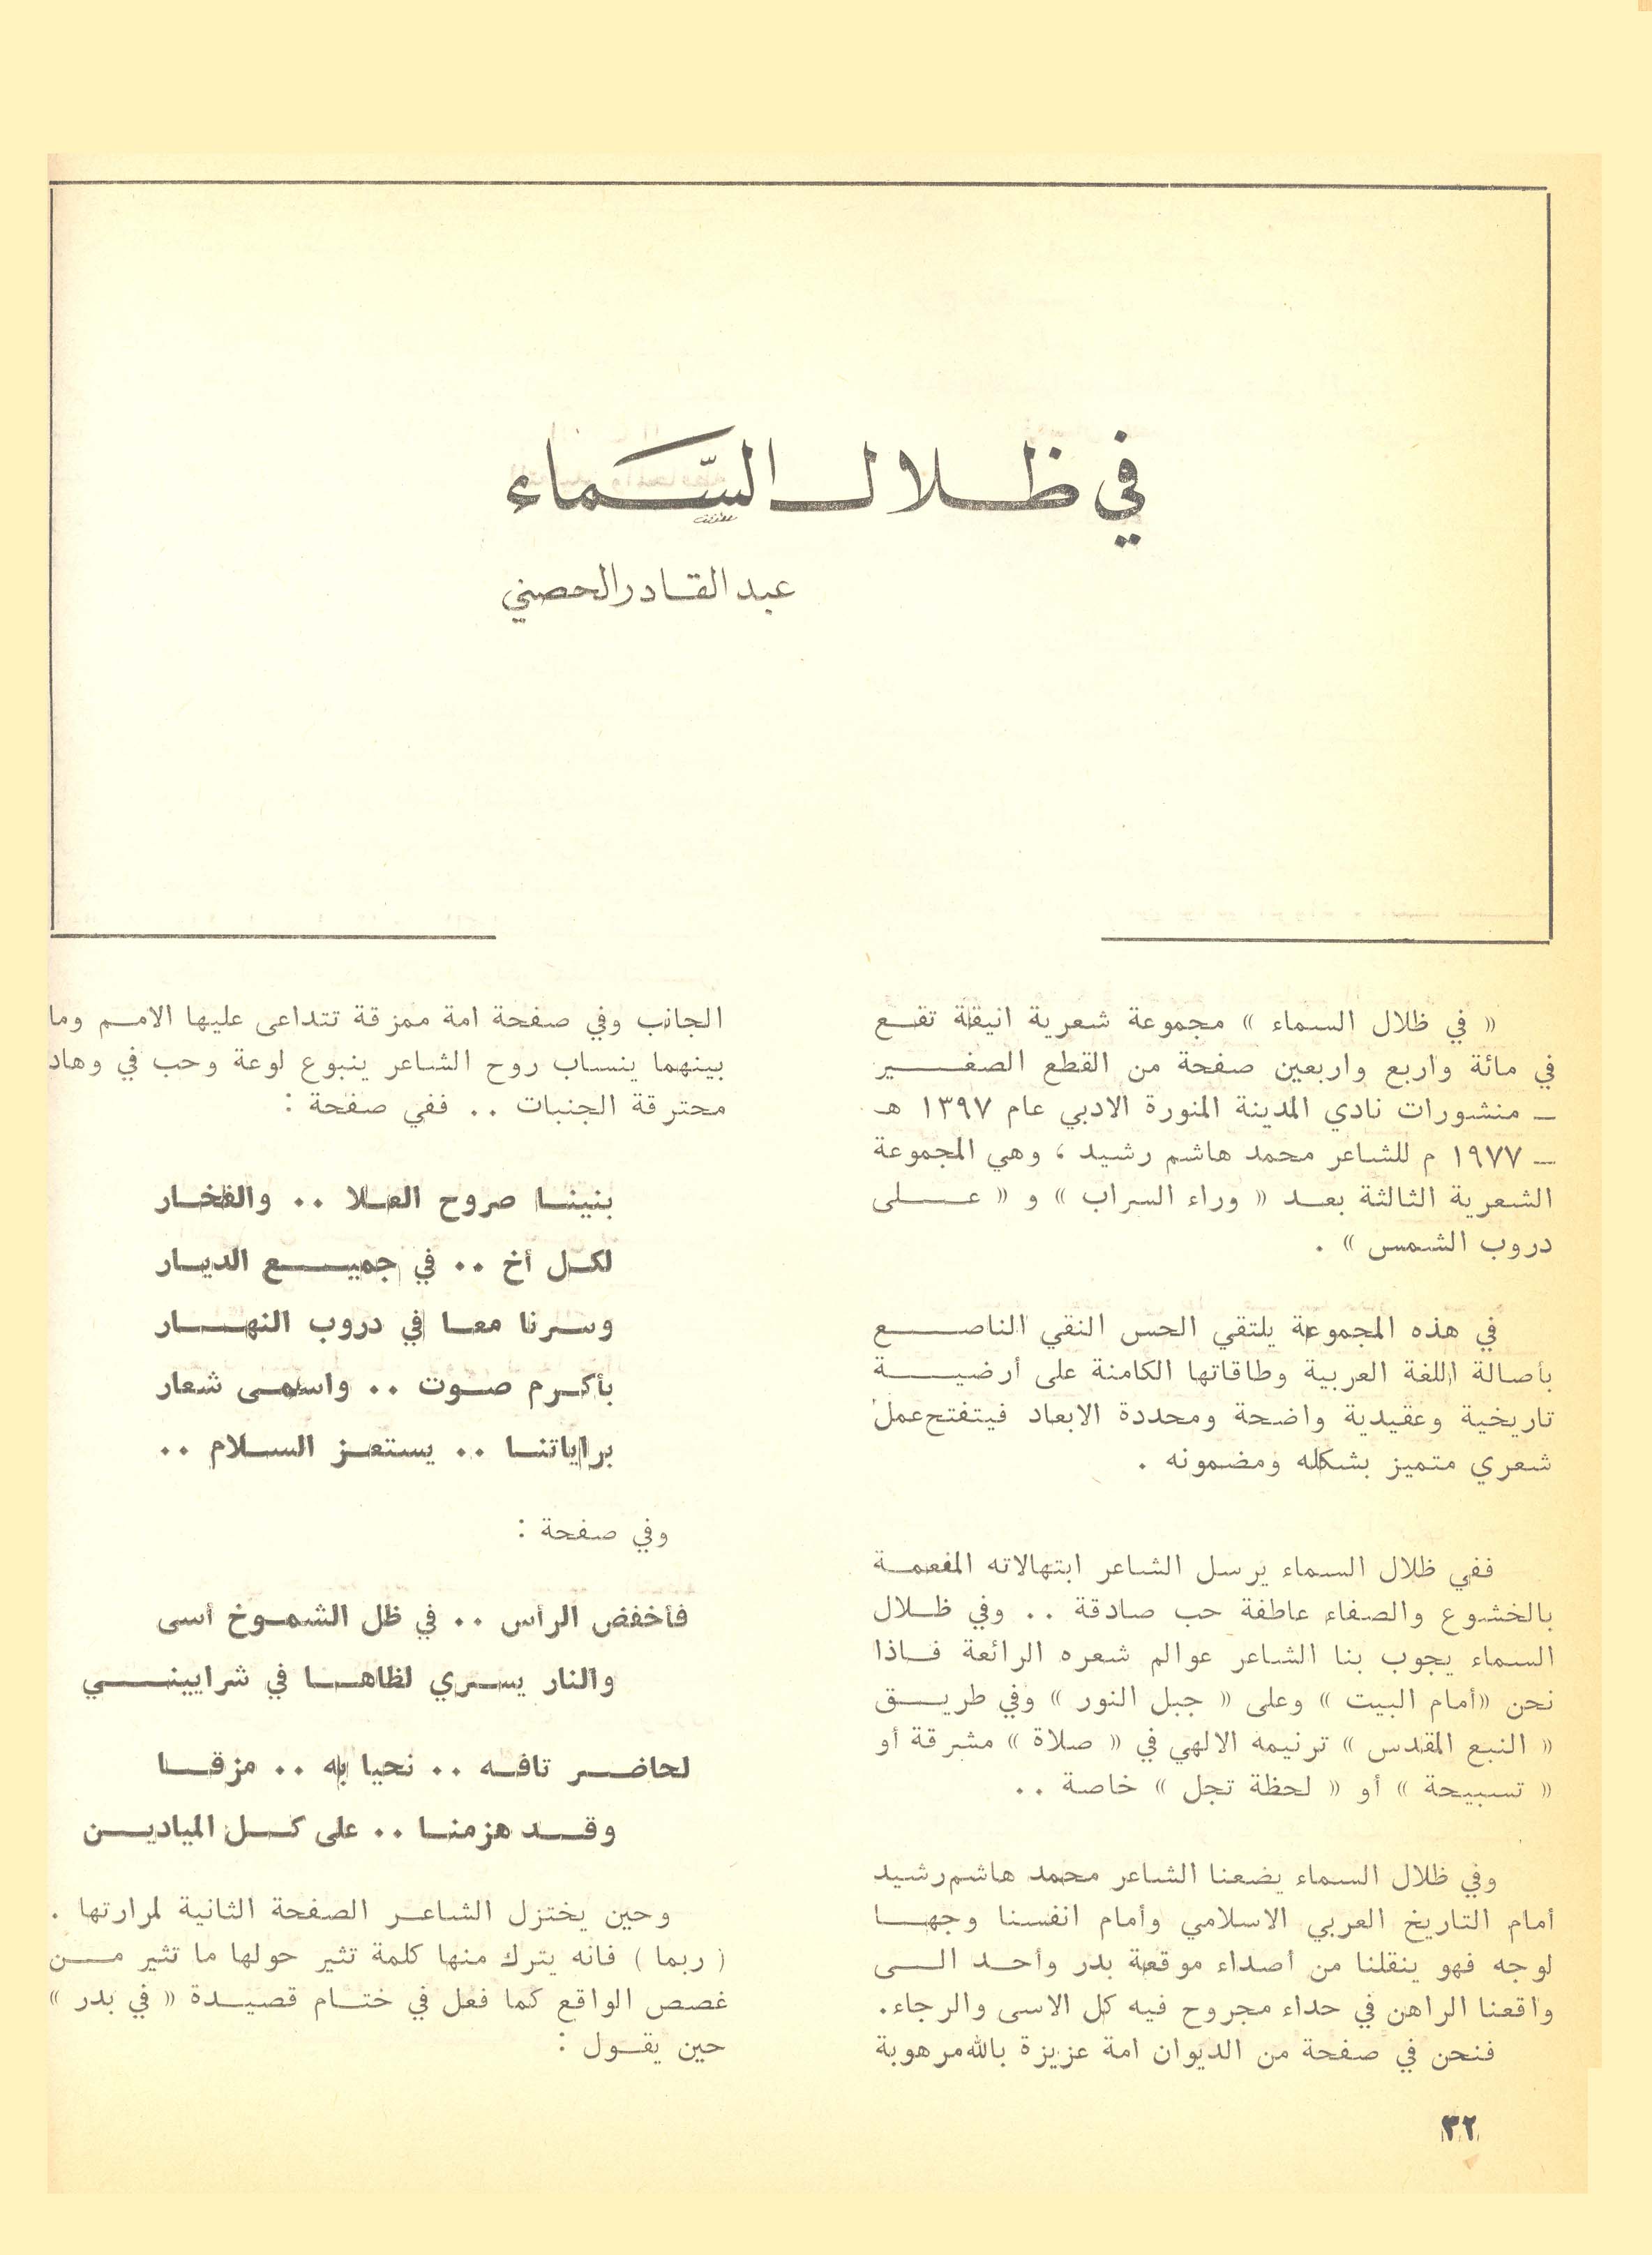 في ظلال السَّماء
عبد القادر الحصني
« في ظلال السماء » مجموعة شعرية انيقة تقع
في مائة واربع واربعين صفحة من القطع الصغير
— منشورات نادي المدينة المنورة الادبي عام ١٣٩٧ هـ
— ١٩٧٧ م للشاعر محمد هاشم رشيد ، وهي المجموعة
الشعرية الثالثة بعد « وراء السراب » و « على
دروب الشمس » .
في هذه المجموعة يلتقي الحس النقي الناصع
بأصالة اللغة العربية وطاقاتها الكامنة على أرضية
تاريخية وعقيدية واضحة ومحددة الابعاد فيتفتح عمل
شعري متميز بشكله ومضمونه .
ففي ظلال السماء يرسل الشاعر ابتهالاته المفعمة
بالخشوع والصفاء عاطفة حب صادقة .. وفي ظلال
السماء يجوب بنا الشاعر عوالم شعره الرائعة فاذا
نحن «أمام البيت » وعلى « جبل النور » وفي طريق
« النبع المقدس » ترنيمه الالهي في « صلاة » مشرقة أو
« تسبيحة » أو « لحظة تجل » خاصة ..
وفي ظلال السماء يضعنا الشاعر محمد هاشم رشيد
أمام التاريخ العربي الاسلامي وأمام انفسنا وجها
لوجه فهو ينقلنا من أصداء موقعة بدر وأحد الى
واقعنا الراهن في حداء مجروح فيه كل الاسى والرجاء.
فنحن في صفحة من الديوان امة عزيزة بالله مرهوبة
الجانب وفي صفحة امة ممزقة تتداعى عليها الامم وما
بينهما ينساب روح الشاعر ينبوع لوعة وحب في وهاد
محترقة الجنبات .. ففي صفحة :
بنينا صروح العلا .. والفخار
لكل أخ .. في جميع الديار
وسرنا معا في دروب النهار
بأكرم صوت .. واسمى شعار
براياتنا .. يستعز السلام ..
وفي صفحة :
فأخفض الرأس .. في ظل الشموخ أسى
والنار يسري لظاها في شراييني
لحاضر تافه .. نحيا به .. مزقا
وقد هزمنا .. على كل الميادين
وحين يختزل الشاعر الصفحة الثانية لمرارتها .
( ربما ) فانه يترك منها كلمة تثير حولها ما تثير من
غصص الواقع كما فعل في ختام قصيدة « في بدر »
حين يقول :
٣٢